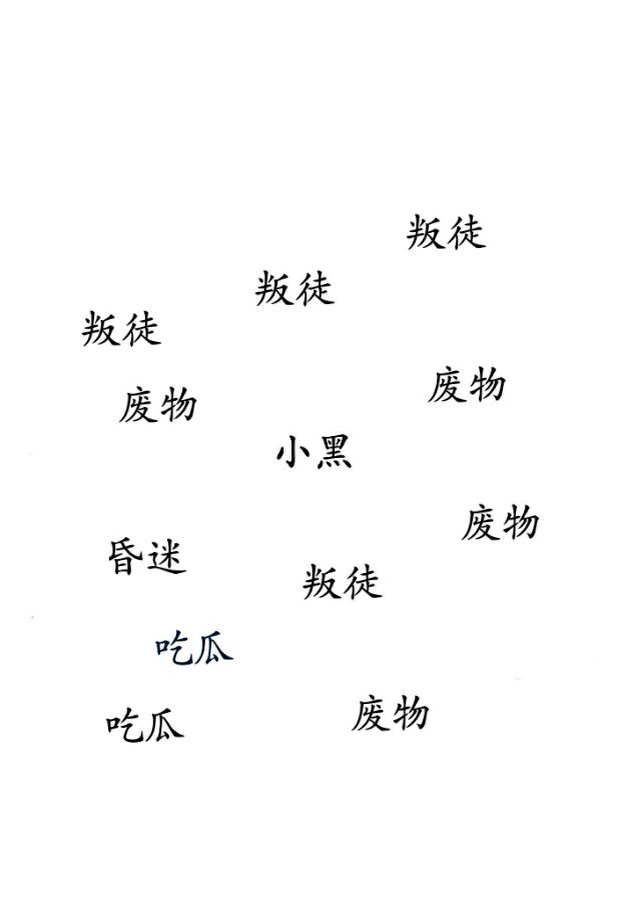 叛徒
叛徒
叛徒
废物
废物
小黑
废物
昏迷
叛徒
吃瓜
废物
吃瓜